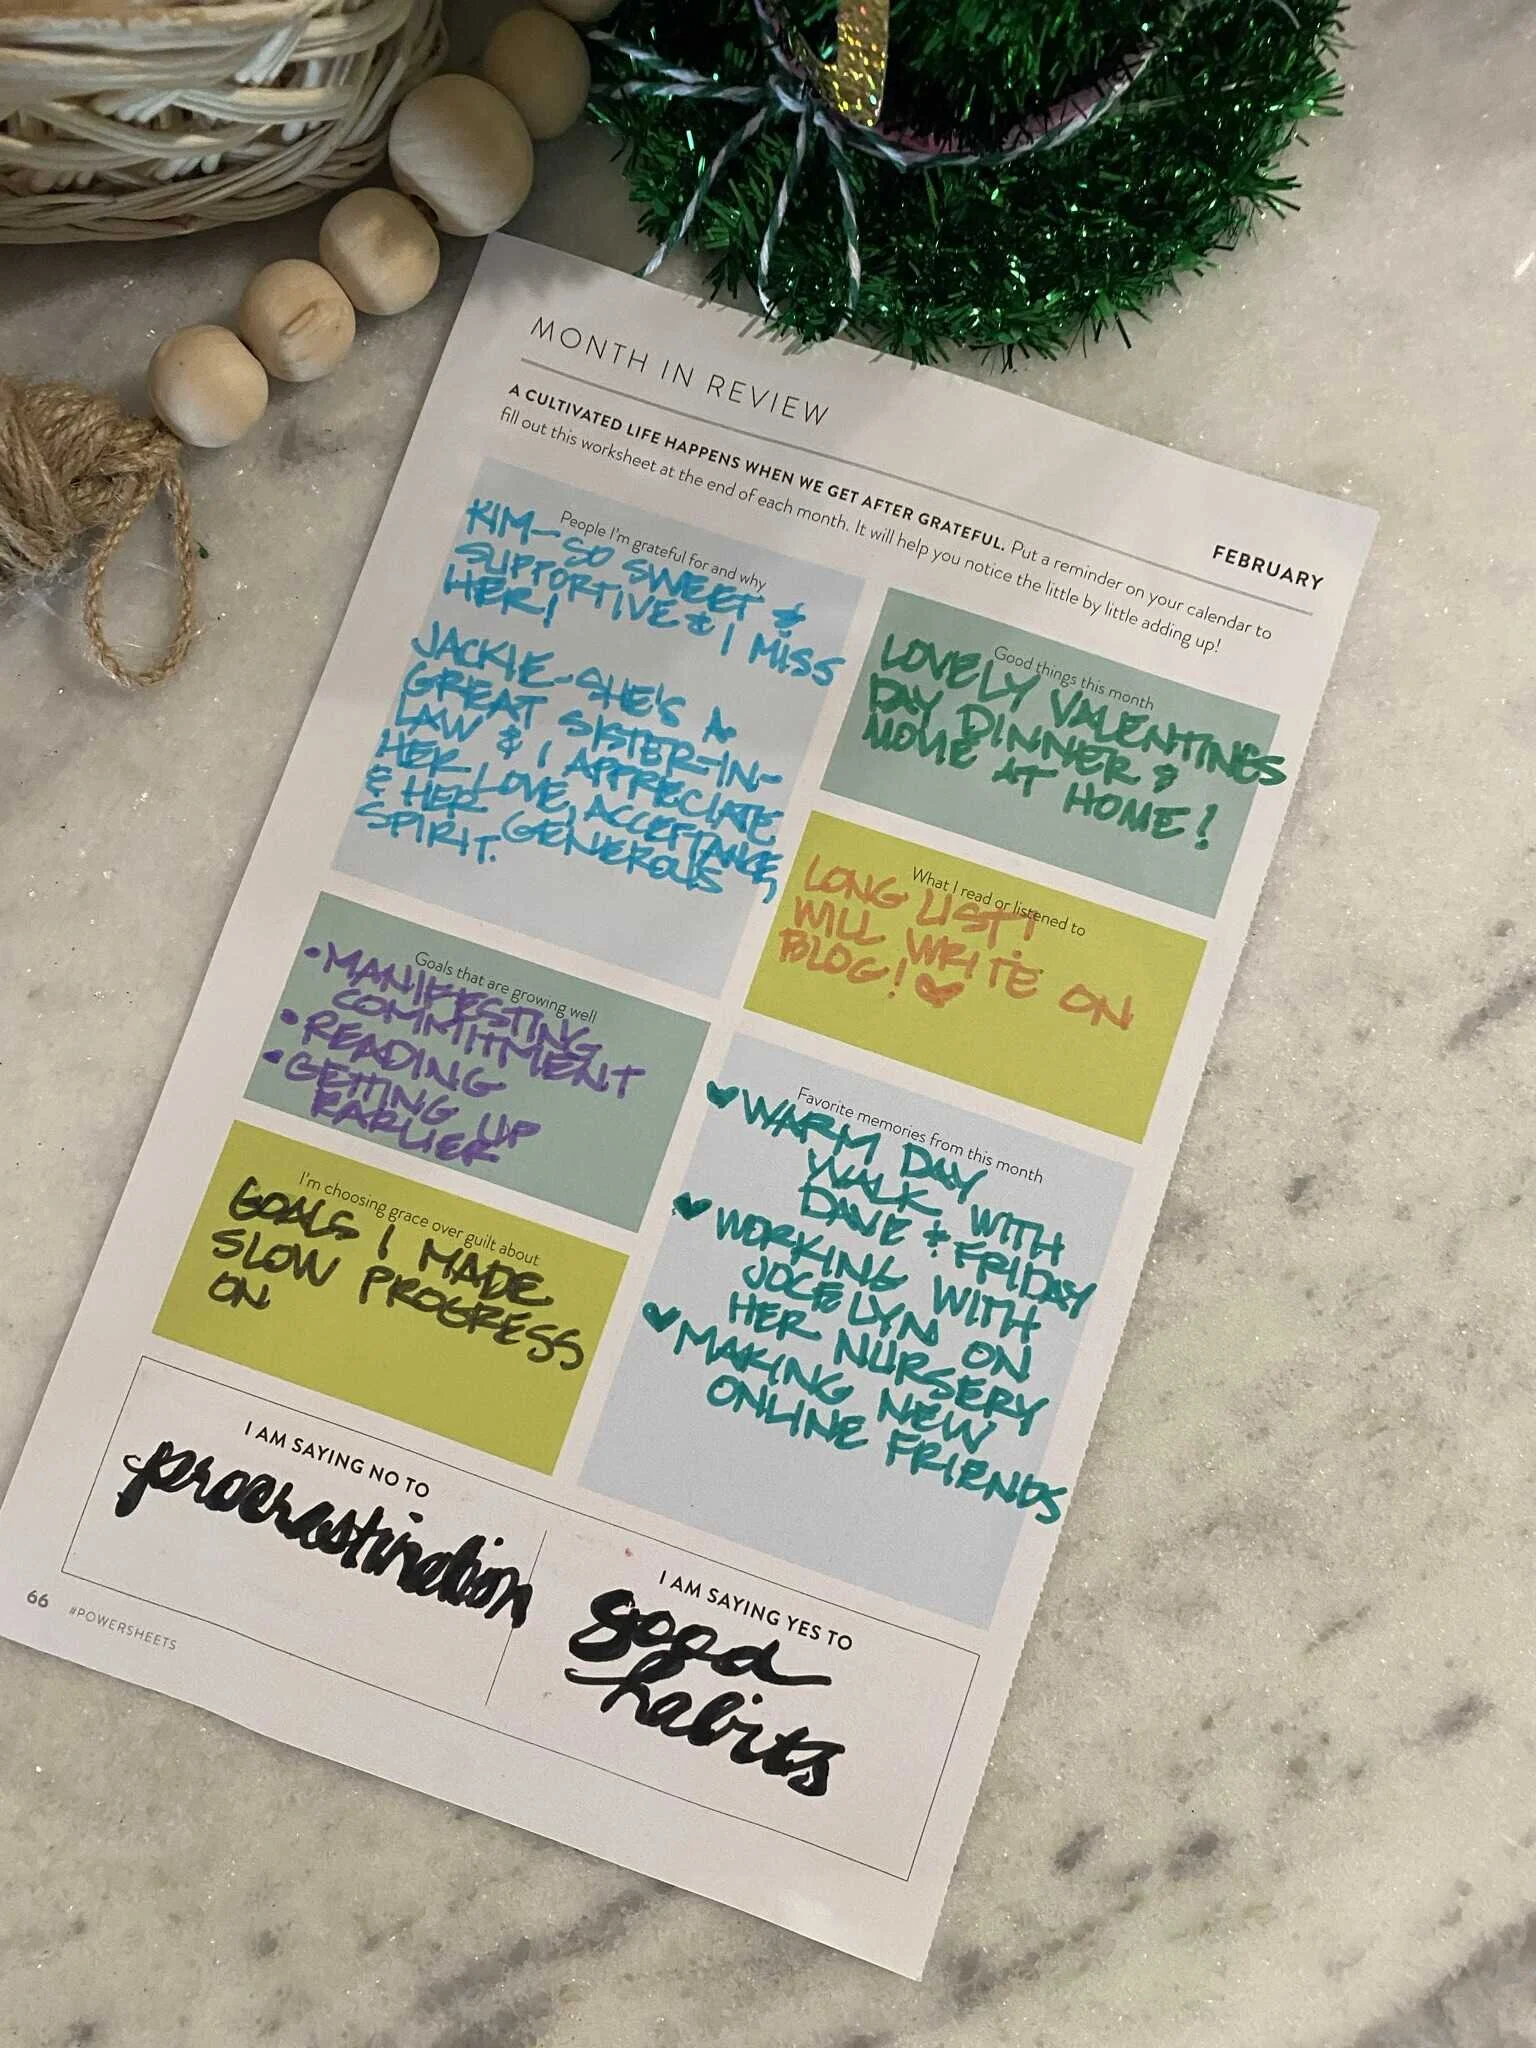 MONTH IN REVIEW
FEBRUARY
A CULTIVATED LIFE HAPPENS WHEN WE GET AFTER GRATEFUL. Put a reminder on your calendar to
fill out this worksheet at the end of each month. It will help you notice the little by little adding up!
People I'm grateful for and why
KIM-SO SWEET &
SUPPORTIVE & I MISS
HER!
JACKIE-SHE'S A
GREAT SISTER-IN-
LAW & I APPRECIATE
HER LOVE, ACCEPTANCE,
& HER GENEROUS
SPIRIT.
Good things this month
LOVELY VALENTINES
DAY DINNER &
MOVIE AT HOME!
What I read or listened to
LONG LIST!
WILL WRITE ON
BLOG! ♥
Goals that are growing well
• MANIFESTING
COMMITMENT
• READING
• GETTING UP
EARLIER
Favorite memories from this month
♥ WARM DAY
WALK WITH
DAVE & FRIDAY
♥ WORKING WITH
JOCELYN ON
HER NURSERY
♥ MAKING NEW
ONLINE FRIENDS
I'm choosing grace over guilt about
GOALS I MADE
SLOW PROGRESS
ON
I AM SAYING NO TO
procrastination
I AM SAYING YES TO
good
habits
66 #POWERSHEETS